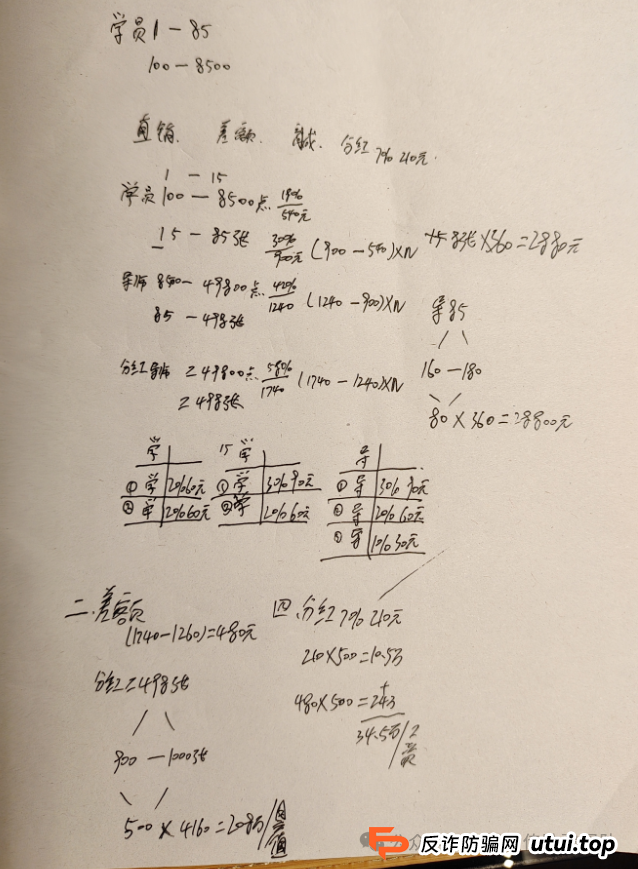 学员1-85
100-8500
直销. 差额. 分红7% 210元.
1-15
学员100-8500点 540元
15-85张 30% 900元 (900-540)×N
8张×360=2880元
导师8500-49800点 42% 1240 (1240-900)×N
85-498张
导85
分红导师 ≥49800点 58% 1740 (1740-1240)×N
≥498张
160-180
80×360=28800元
学 15学 导
①学 20%60元 ①学 30%90元 ①导 30%90元
②学 20%60元 ②学 20%60元 ②导 20%60元
③导 10%30元
二.差额 四.分红7% 210元
(1740-1260)=480元
210×500=10.5万
分红=498张
480×500=24万
34.5万/
900-1000张
500×4160=208万/
反诈防骗网 utui.top